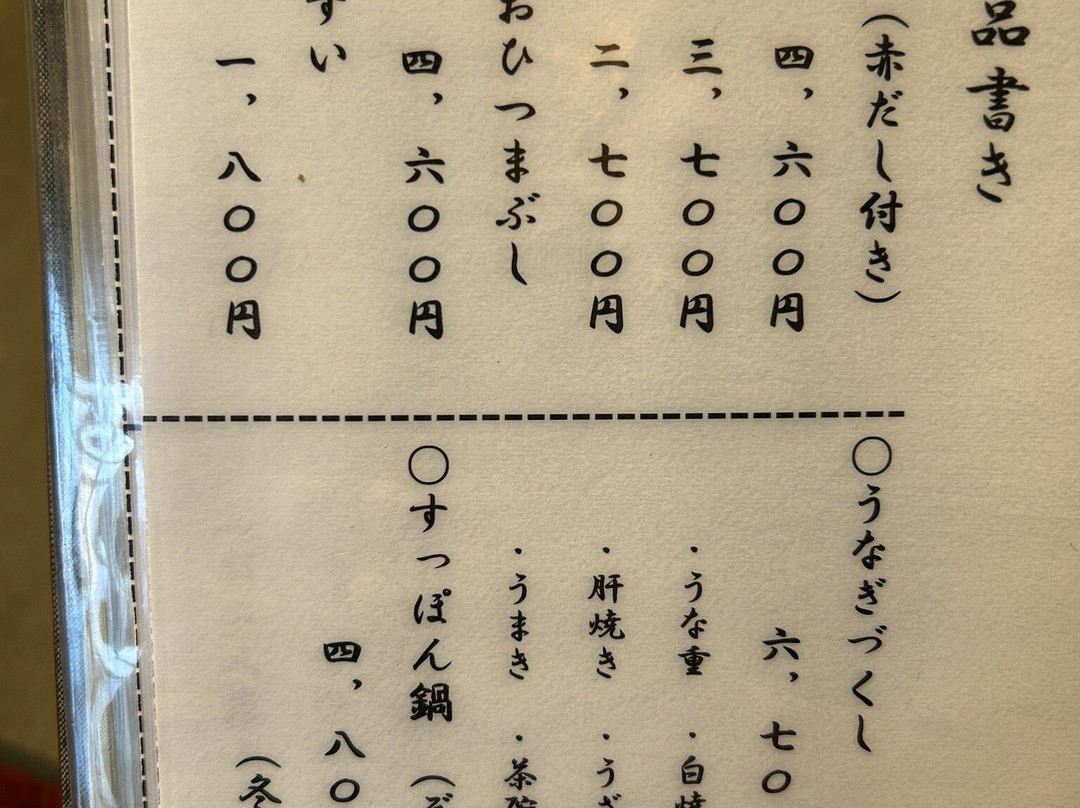 品書き
(赤だし付き)
四,六〇〇円
三,七〇〇円
二,七〇〇円
おひつまぶし
四,六〇〇円
すい
一,八〇〇円
〇うなぎづくし
六,七〇
・うな重 ・白焼
・肝焼き ・うざ
・うまき ・茶碗
〇すっぽん鍋 (ぞ
四,八〇
(冬